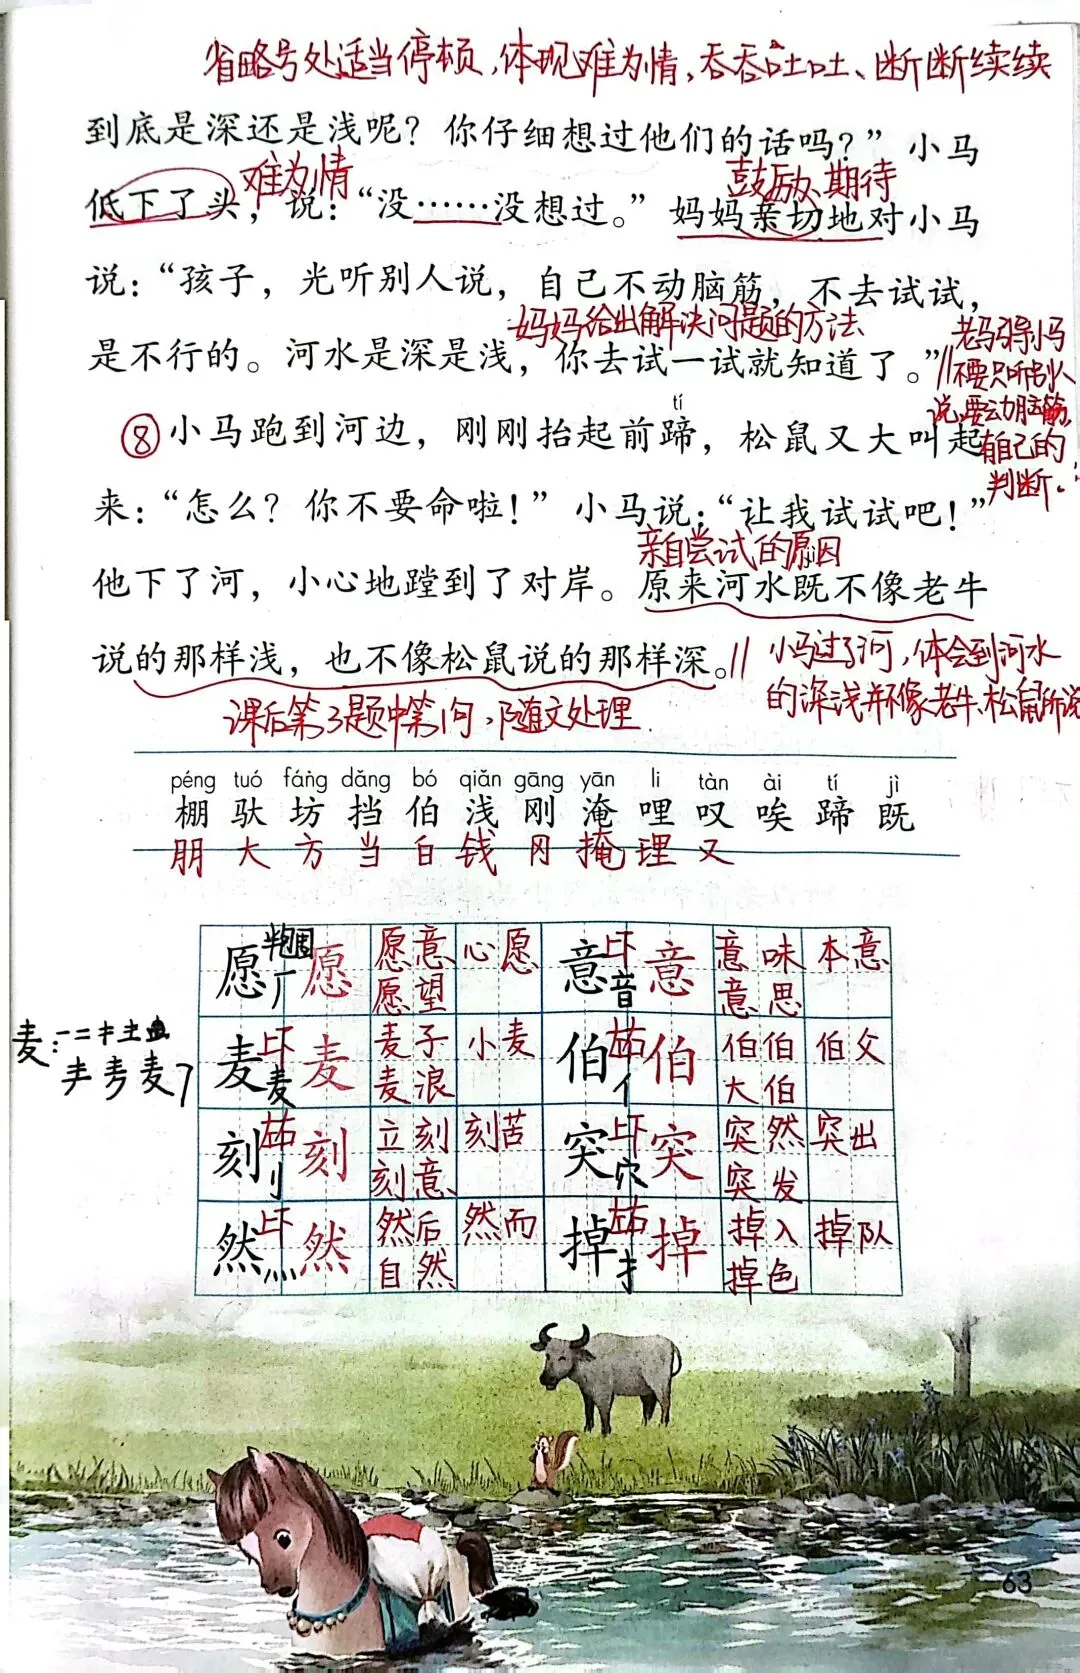 省略号处适当停顿,体现难为情,吞吞吐吐、断断续续
到底是深还是浅呢？你仔细想过他们的话吗？”小马
难为情 鼓励、期待
低下了头，说：“没……没想过。”妈妈亲切地对小马
说：“孩子，光听别人说，自己不动脑筋，不去试试，
妈妈给出解决问题的方法
是不行的。河水是深是浅，你去试一试就知道了。”
老马引导小马
不要只听别人
说,要动脑筋,
有自己的
判断.
tí
⑧小马跑到河边，刚刚抬起前蹄，松鼠又大叫起
来：“怎么？你不要命啦！”小马说：“让我试试吧！”
亲自尝试的原因
他下了河，小心地蹚到了对岸。原来河水既不像老牛
说的那样浅，也不像松鼠说的那样深。
小马过了河,体会到河水
的深浅并不像老牛、松鼠所说
课后第3题中第1问,随文处理
péng tuó fáng dǎng bó qiǎn gāng yān li tàn ài tí jì
棚 驮 坊 挡 伯 浅 刚 淹 哩 叹 唉 蹄 既
朋 大 方 当 白 钱 冈 掩 理 又
愿 半包围 厂 愿 愿意 心愿 愿望 意 上下 音 意 意味 本意 意思
麦:一二キ主
麦 上下 麦 麦 麦子 小麦 麦浪 伯 左右 亻 伯 伯伯 伯父 大伯
刻 左右 刂 刻 立刻 刻苦 刻意 突 上下 穴 突 突然 突出 突发
然 上下 灬 然 然后 然而 自然 掉 左右 扌 掉 掉入 掉队 掉色
63